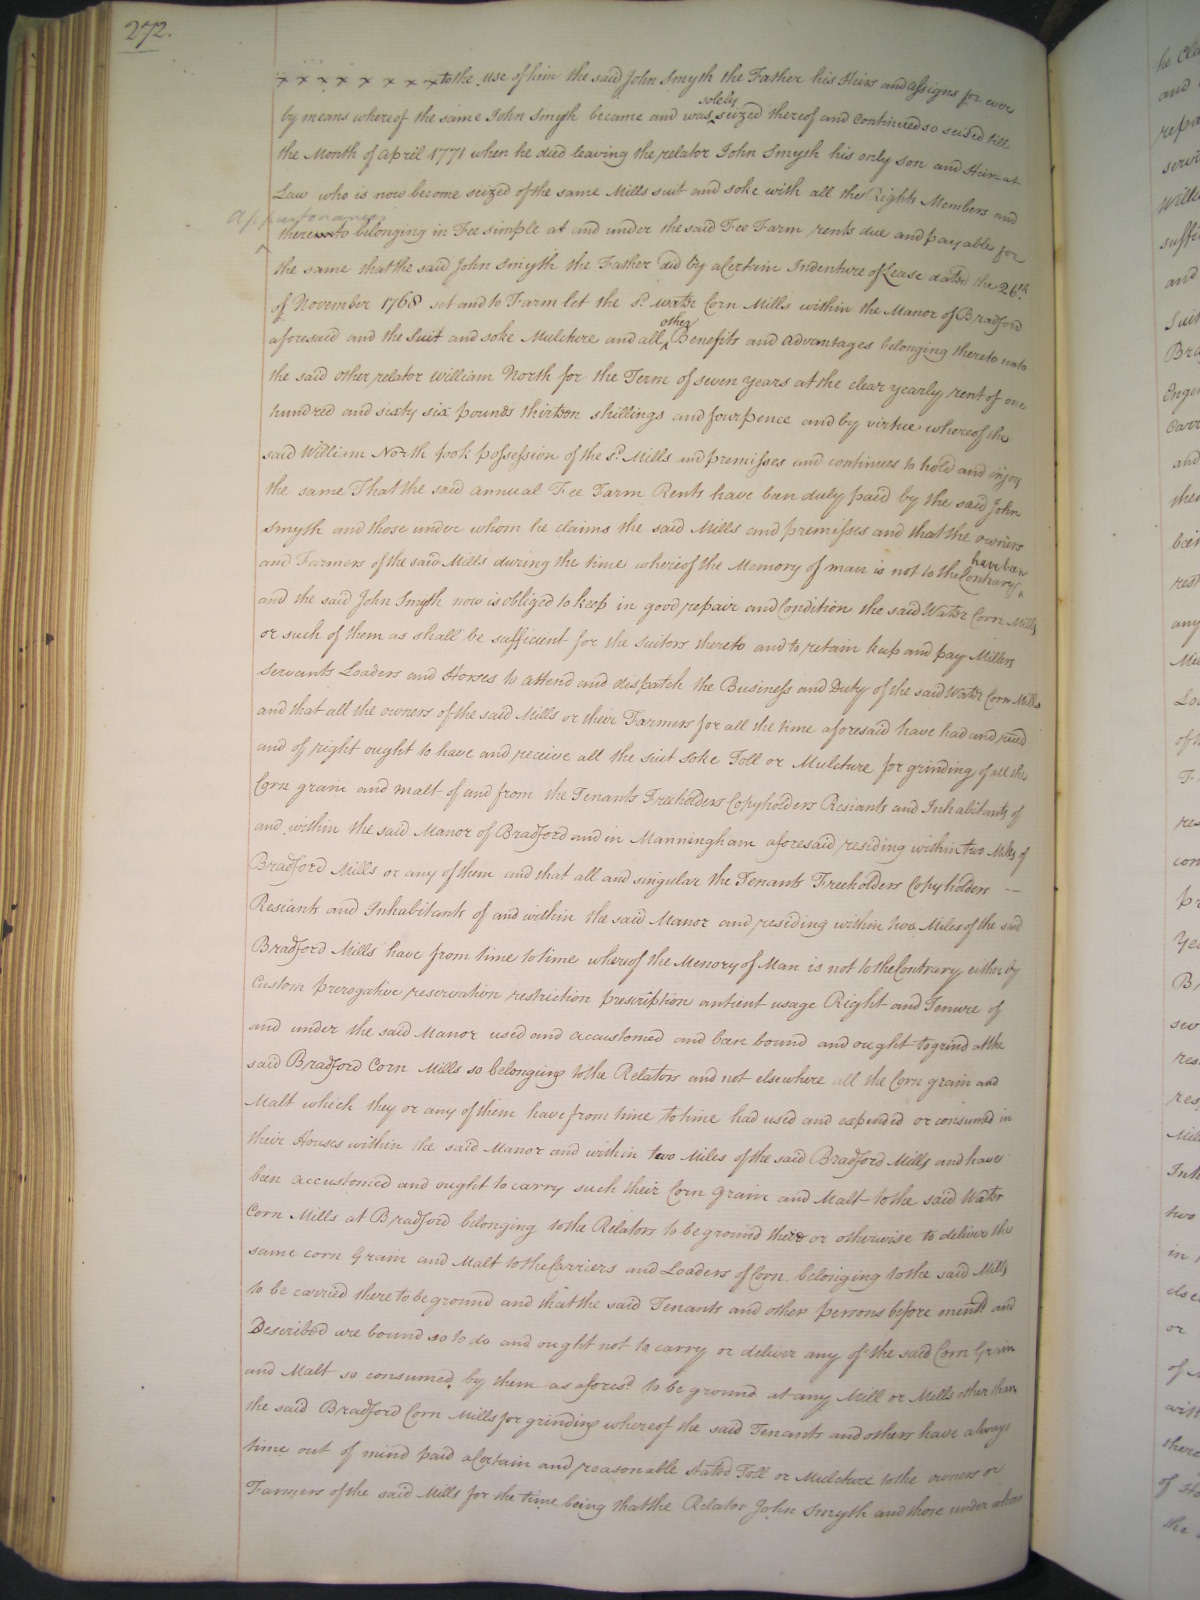 272.
x x x x x x x x to the use of him the said John Smyth the Father his Heirs and assigns for ever
by means whereof the same John Smyth became and was solely seized thereof and continued so seised till
the Month of April 1771 when he died leaving the relator John Smyth his only son and Heir at
Law who is now become seized of the same Mills suit and soke with all the Rights Members and
appurtenances
thereunto belonging in Fee simple at and under the said Fee Farm rents due and payable for
the same that the said John Smyth the Father did by a Certain Indenture of Lease dated the 26th
of November 1768 set and to Farm let the sd. water Corn Mills within the Manor of Bradford
aforesaid and the Suit and soke Mulcture and all other Benefits and Advantages belonging thereto unto
the said other relator William North for the Term of seven years at the clear yearly rent of one
hundred and sixty six pounds thirteen shillings and fourpence and by virtue whereof the
said William North took possession of the sd. Mills and premisses and continues to hold and injoy
the same That the said annual Fee Farm Rents have been duly paid by the said John
Smyth and those under whom he claims the said Mills and premisses and that the owners
and Farmers of the said Mills during the time whereof the Memory of man is not to the Contrary have been
and the said John Smyth now is obliged to keep in good repair and Condition the said Water Corn Mills
or such of them as shall be sufficient for the suitors thereto and to retain keep and pay Millers
Servants Loaders and Horses to attend and dispatch the Business and Duty of the said Water Corn Mills
and that all the owners of the said Mills or their Farmers for all the time aforesaid have had and reced
and of right ought to have and receive all the suit soke Toll or Mulcture for grinding of all the
Corn grain and malt of and from the Tenants Freeholders Copyholders Resiants and Inhabitants of
and within the said Manor of Bradford and in Manningham aforesaid residing within two Miles of
Bradford Mills or any of them and that all and singular the Tenants Freeholders Copyholders —
Resiants and Inhabitants of and within the said Manor and residing within two Miles of the said
Bradford Mills have from time to time whereof the Memory of Man is not to the Contrary either by
Custom prerogative reservation restriction prescription antient usage Right and Tenure of
and under the said Manor used and accustomed and been bound and ought to grind at the
said Bradford Corn Mills so belonging to the Relators and not elsewhere all the Corn grain and
Malt which they or any of them have from time to time had used and expended or consumed in
their Houses within the said Manor and within two Miles of the said Bradford Mills and have
been accustomed and ought to carry such their Corn Grain and Malt to the said Water
Corn Mills at Bradford belonging to the Relators to be ground there or otherwise to deliver the
same corn Grain and Malt to the Carriers and Loaders of Corn belonging to the said Mills
to be carried there to be ground and that the said Tenants and other persons before mentd and
Described are bound so to do and ought not to carry or deliver any of the said Corn Grain
and Malt so consumed by them as aforesd to be ground at any Mill or Mills other than
the said Bradford Corn Mills for grinding whereof the said Tenants and others have always
time out of mind paid a Certain and reasonable stated Toll or Mulcture to the owners or
Farmers of the said Mills for the time being that the Relator John Smyth and those under whom